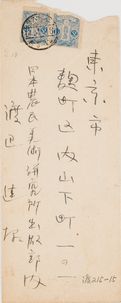 東京市
麹町区内山下町一ノ一
日本農民美術研究所出版部内
渡辺 達 様
渡215-15